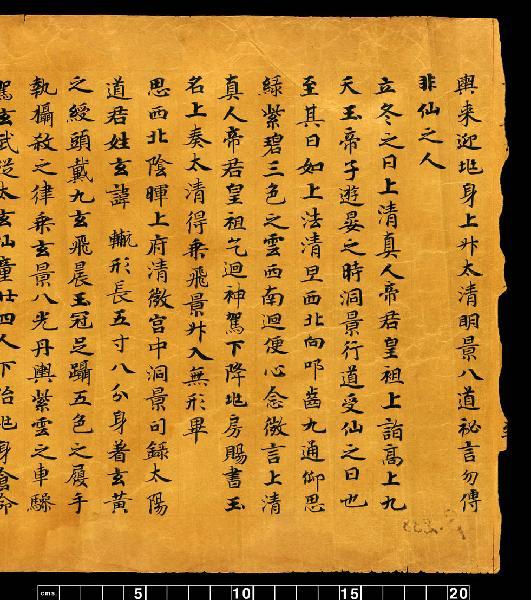 輿来迎兆身上升太清明景八道祕言勿傳
非仙之人
立冬之日上清真人帝君皇祖上詣高上九
天玉帝子遊晏之時洞景行道受仙之日也
至其日如上法清旦西北向叩齒九通仰思
綠紫碧三色之雲西南迴便心念微言上清
真人帝君皇祖乞迴神駕下降兆房賜書玉
名上奏太清得乘飛景升入無形畢
思西北陰暉上府清微宮中洞景司錄太陽
道君姓玄諱 形長五寸八分身著玄黃
之綬頭戴九玄飛晨玉冠足躡五色之履手
執攝殺之律乘玄景八光丹輿紫雲之車驂
駕玄武從太玄仙童廿四人下治兆身命
cms 5 10 15 20